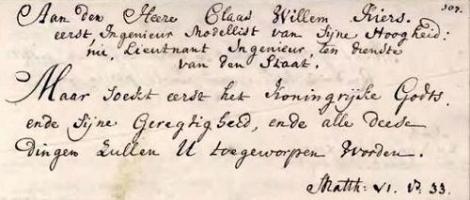 307.
Aan den Heere Claas Willem Kiers.
eerst, Ingenieur Modellist van Sijne Hoogheid:
nu, Lieutnant Ingenieur, ten dienste
van den Staat.
Maar soekt eerst het Koningrijke Godts.
ende Sijne Geregtigheed, ende alle deese
dingen Zullen U toegeworpen Worden.
Matth: VI. vs. 33.